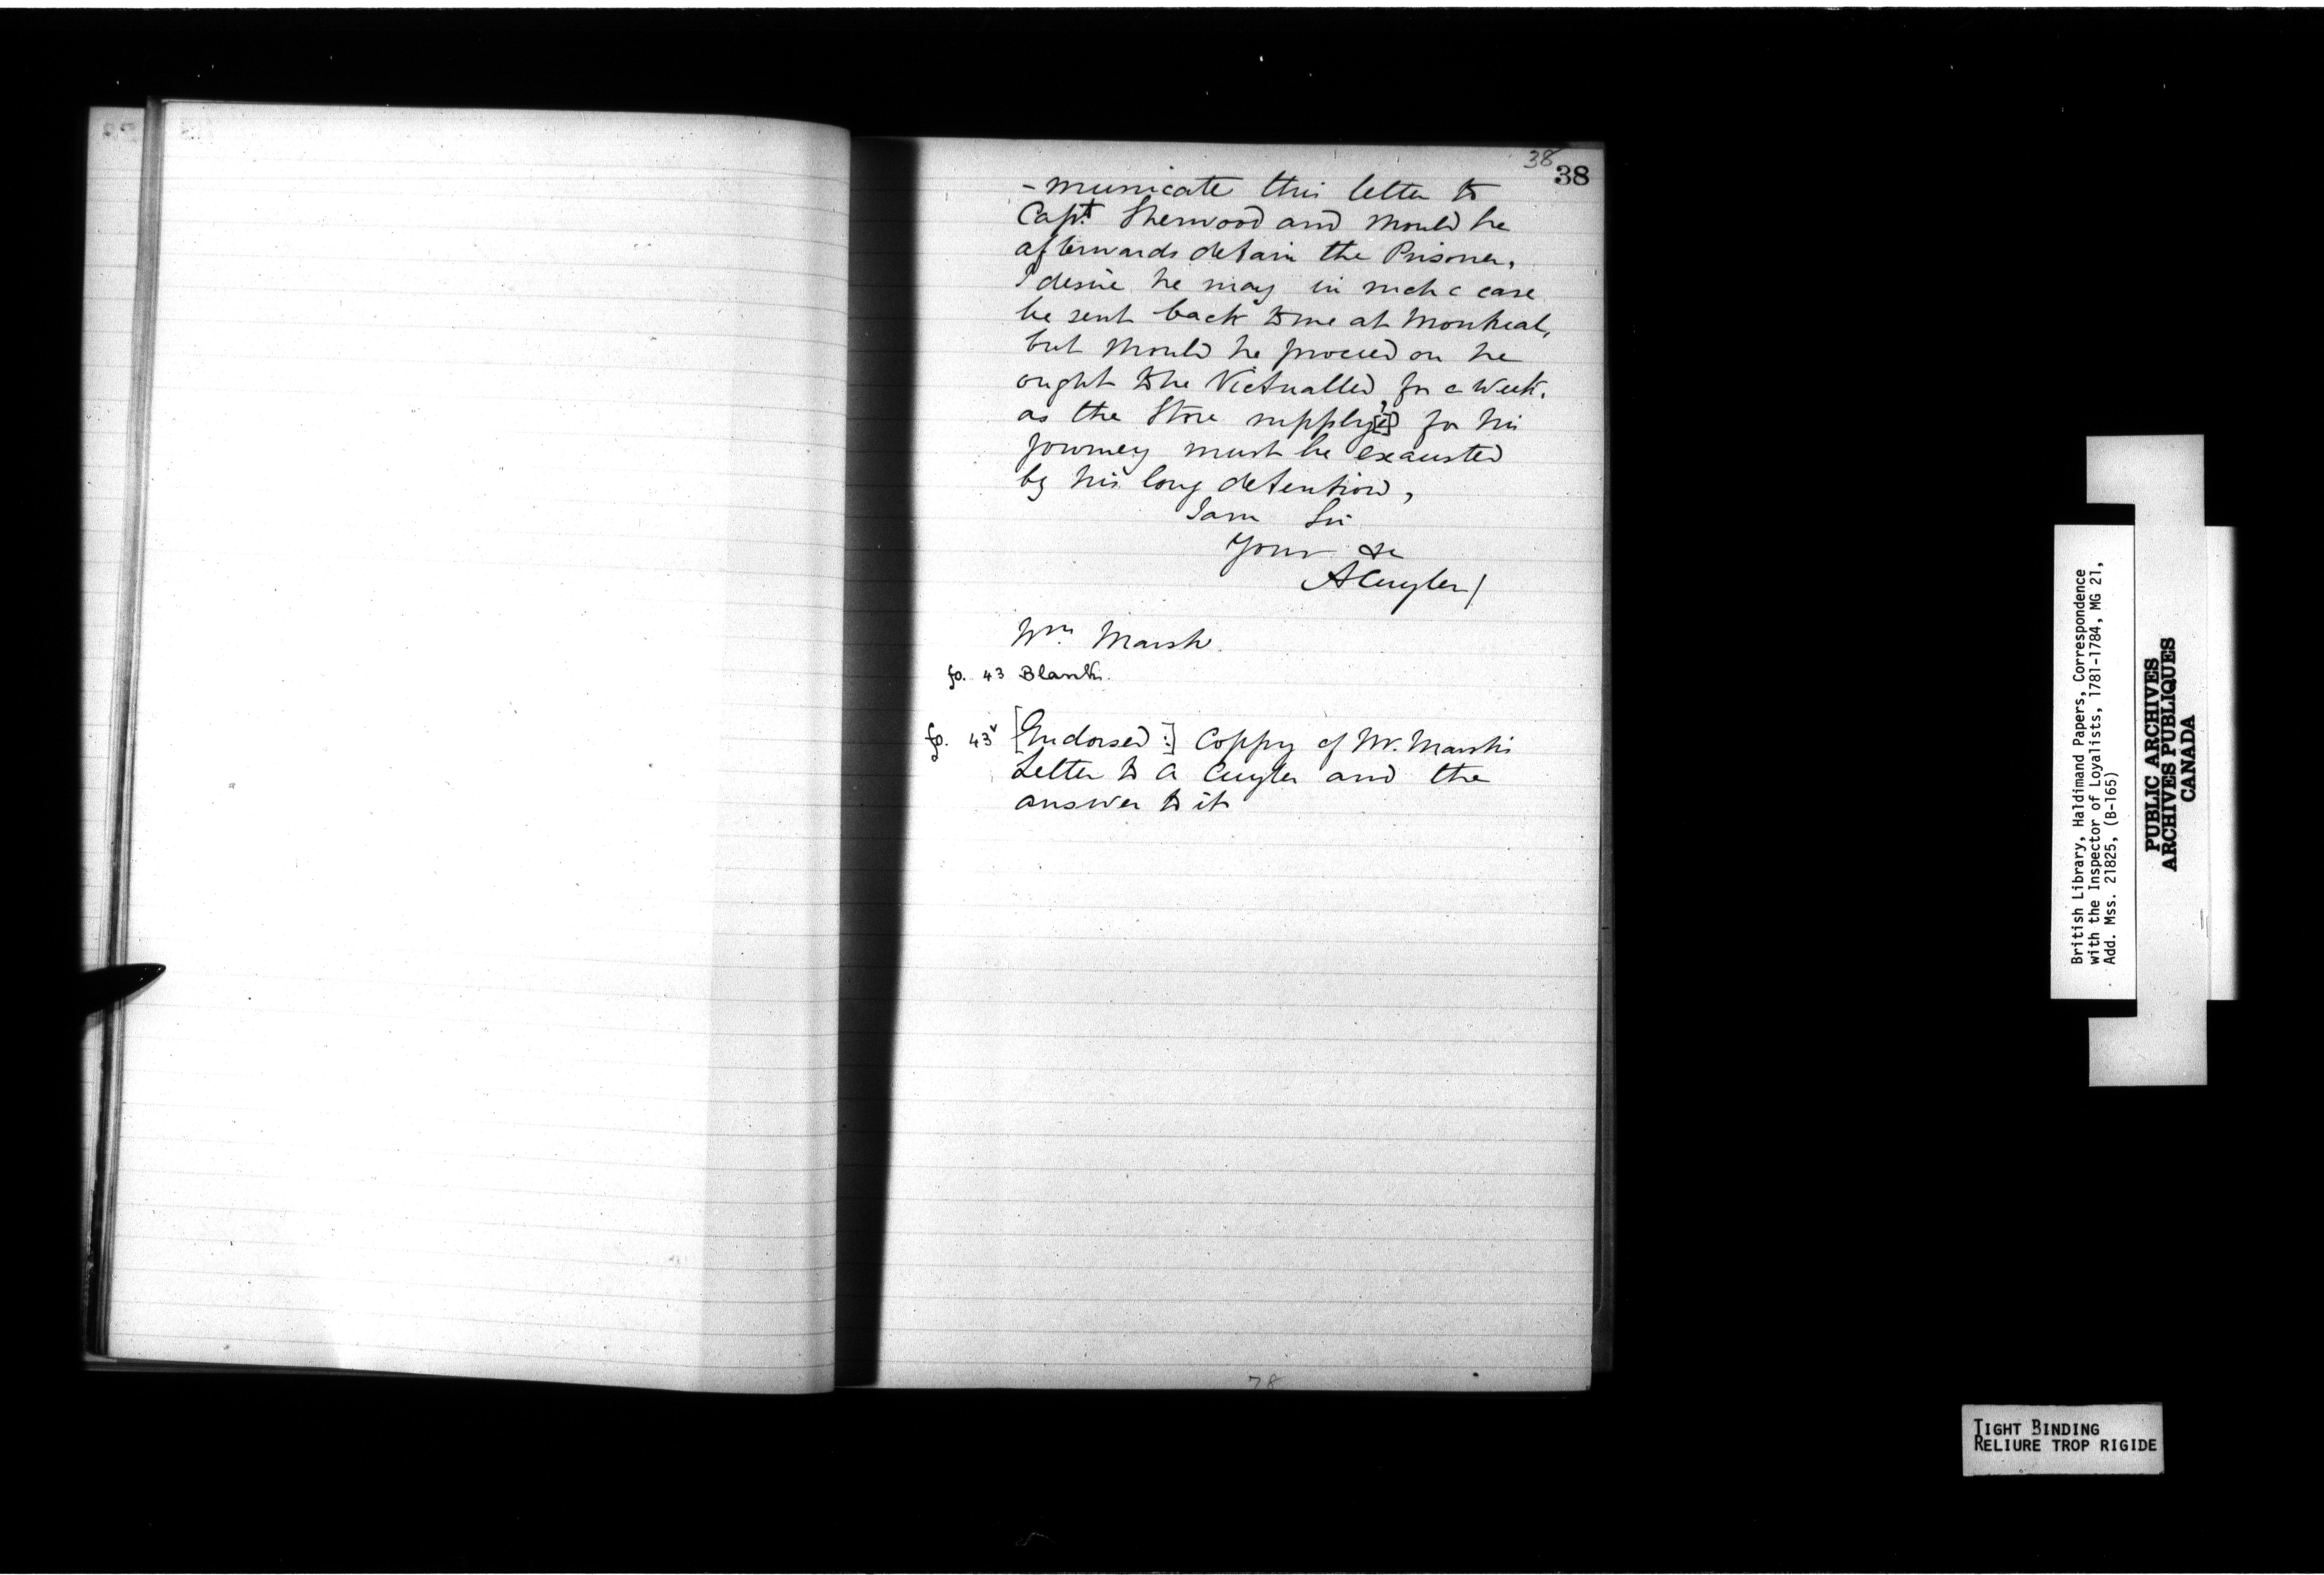 38
38
- municate this letter to
Capt. Sherwood and should he
afterwards detain the Prisoner,
I desire he may in such a case
be sent back to me at Montreal,
but should he proceed on he
ought to be Victualled, for a week.
as the Store supply[e]d for his
journey must be exausted
by his long detention,
I am Sir
Yours &c
ACuyler/
Wm. Marsh.
fo. 43 Blank.
fo. 43v [Endorsed:] Coppy of Mr. Marsh's
Letter to A Cuyler and the
answer to it
78
British Library, Haldimand Papers, Correspondence
with the Inspector of Loyalists, 1781-1784, MG 21,
Add. Mss. 21825, (B-165)
PUBLIC ARCHIVES
ARCHIVES PUBLIQUES
CANADA
TIGHT BINDING
RELIURE TROP RIGIDE